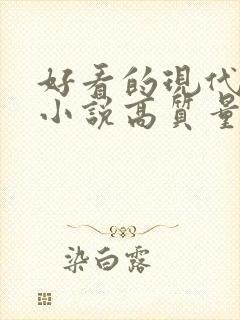 好看的现代
小说高质量
染白露